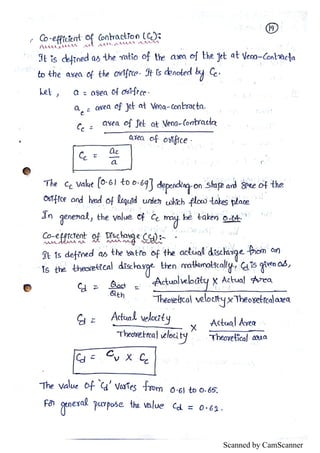 19
Co-efficient of Contraction (Cc):
It is defined as the ratio of the area of the jet at Vena-Contracta
to the area of the orifice. It is denoted by Cc.
Let, a = area of orifice.
ac = area of jet at Vena-contracta.
Cc = area of Jet at Vena-Contracta
area of orifice.
Cc = ac
a
The Cc value [0.61 to 0.69] depending on shape and size of the
orifice and head of liquid under which flow takes place
In general, the value of Cc may be taken 0.64.
Co-efficient of Discharge (Cd):-
It is defined as the ratio of the actual discharge from an
is the theoretical discharge then mathematically, Cd is given as,
Cd = Qact = Actual velocity X Actual Area
Qth Theoretical velocity x Theoretical area
Cd = Actual velocity X Actual Area
Theoretical velocity Theoretical area
Cd = Cv X Cc
The value of 'Cd' varies from 0.61 to 0.65.
For general purpose the value Cd = 0.62.
Scanned by CamScanner